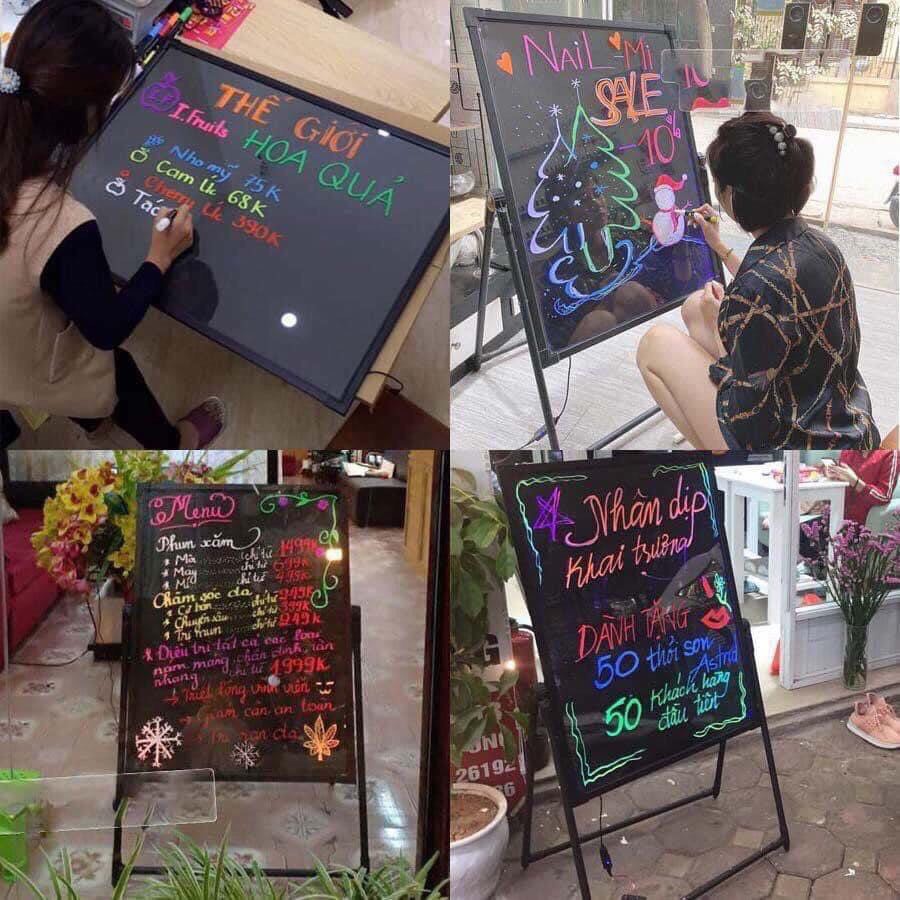 THẾ GIỚI
HOA QUẢ
I.Fruits
Nho mỹ 75K
Cam Úc 68K
Cherry Úc 390K
Táo
NAIL-Mi
SALE
-10%
Menu
Phun xăm
* Mày chỉ từ 699K
* Mí chỉ từ 499K
Chăm sóc da
* Cơ bản chỉ từ 249K
* Chuyên sâu chỉ từ 399K
* Trị mụn chỉ từ 249K
Điều trị tất cả các loại
nám mảng, chân đinh, tàn
nhang chỉ từ 1999K
→ Triệt lông vĩnh viễn
→ Giảm cân an toàn
Nhân dịp
Khai trương
DÀNH TẶNG
50 thỏi son
Astrid
50 Khách hàng
đầu tiên
26192